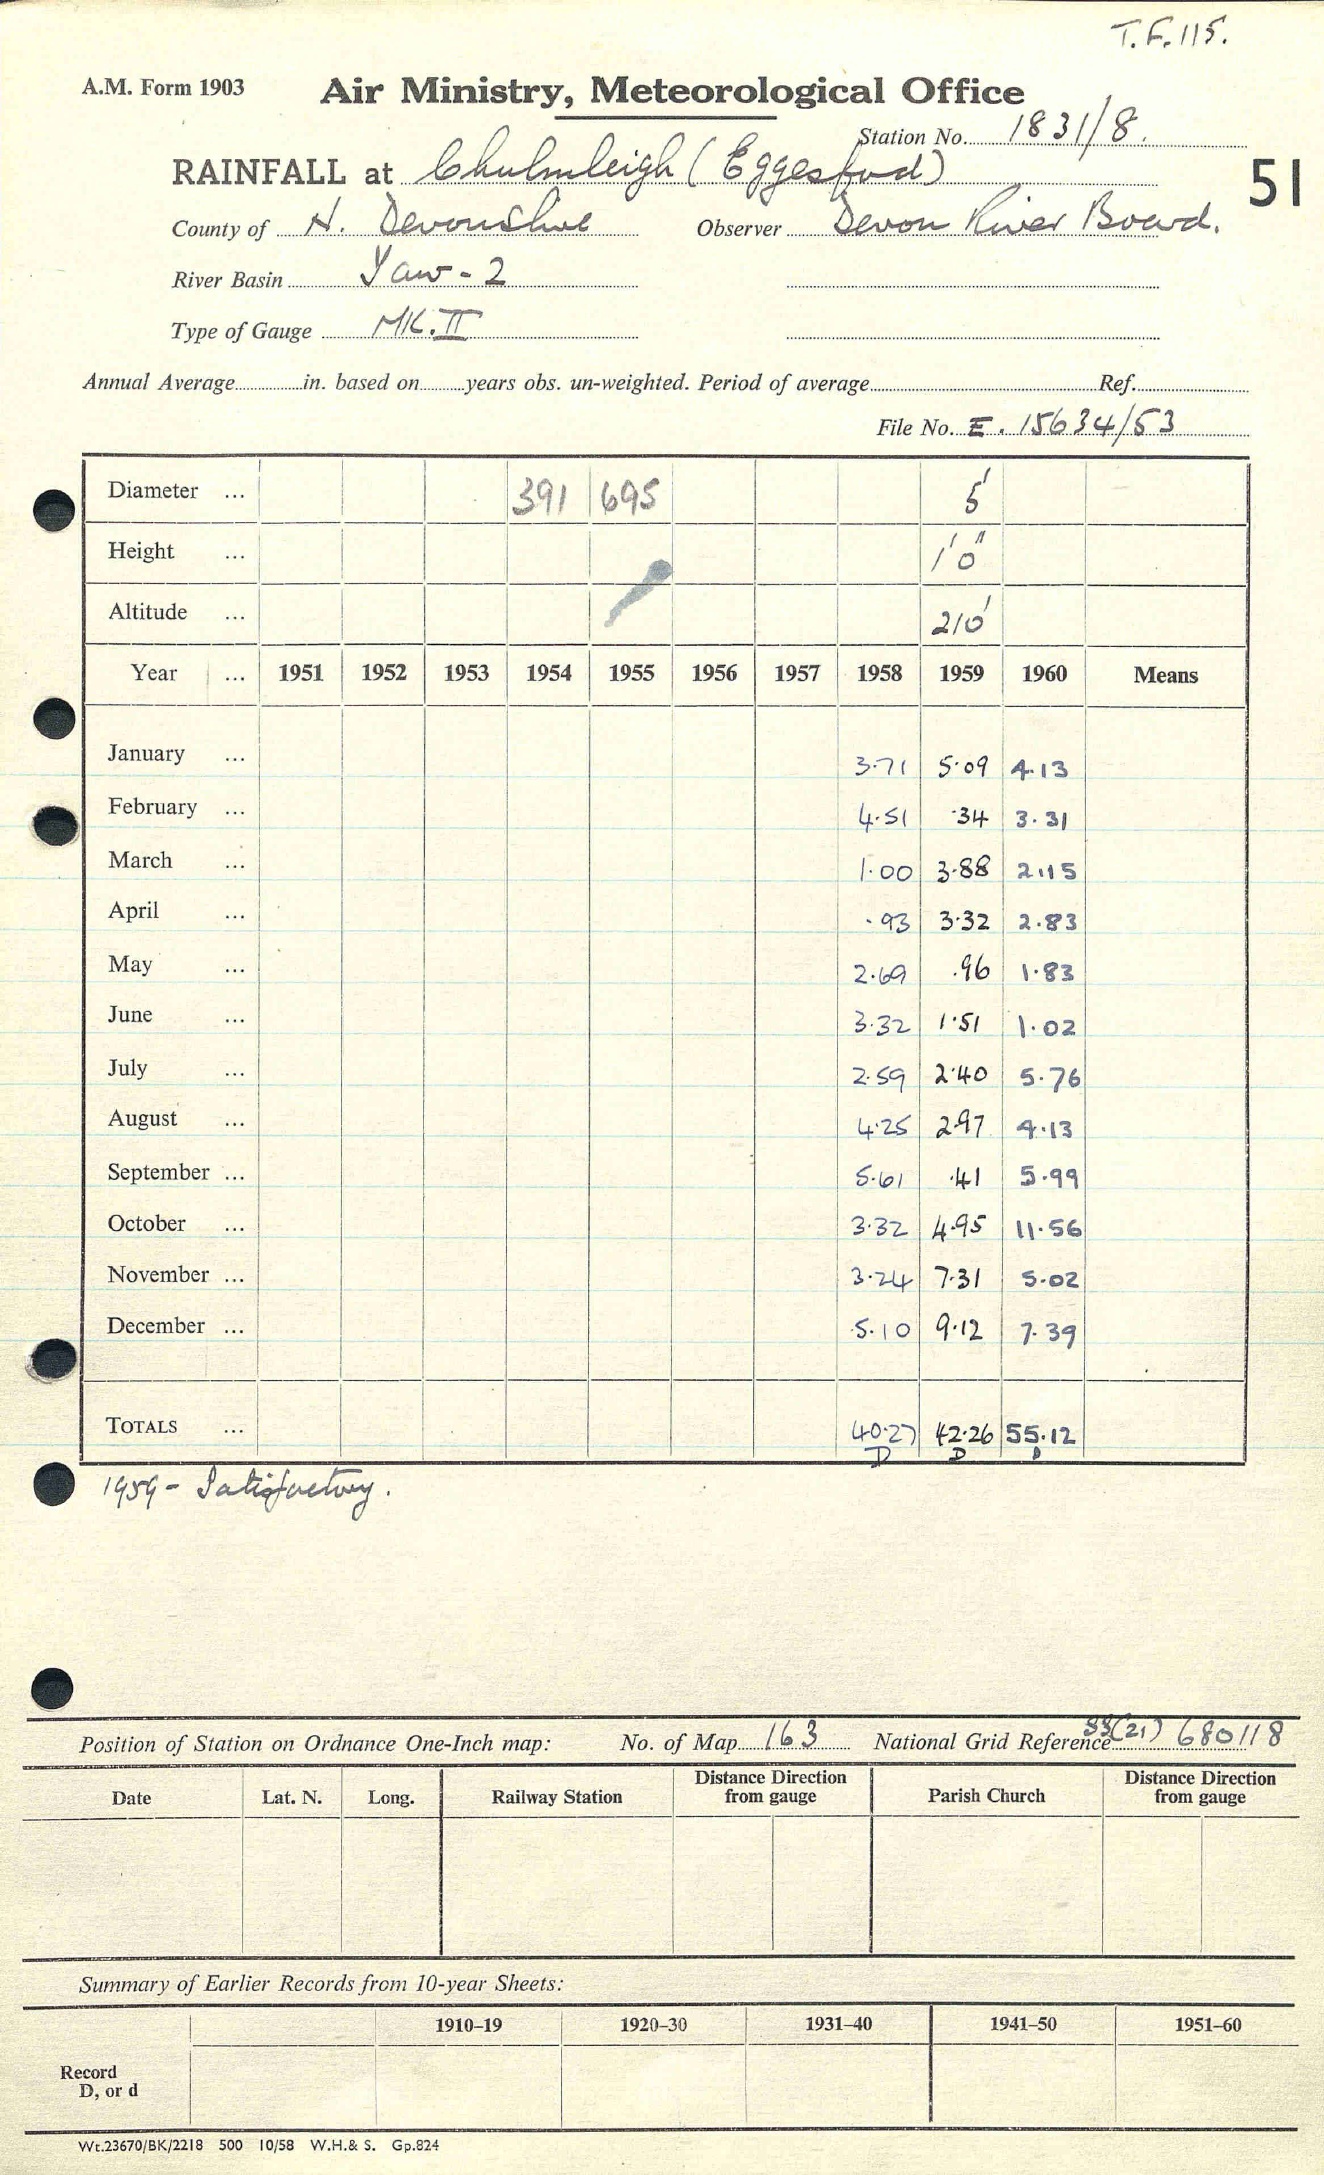 T.F.115.
A.M. Form 1903 Air Ministry, Meteorological Office
Station No. 1831/8.
RAINFALL at Chulmleigh (Eggesford)
51
County of N. Devonshire Observer Devon River Board.
River Basin Taw - 2
Type of Gauge MK.II
Annual Average in. based on years obs. un-weighted. Period of average Ref.
File No. E. 15634/53
Diameter ... 391 695 5'
Height ... 1'0"
Altitude ... 210'
Year ... 1951 1952 1953 1954 1955 1956 1957 1958 1959 1960 Means
January ... 3.71 5.09 4.13
February ... 4.51 .34 3.31
March ... 1.00 3.88 2.15
April ... .93 3.32 2.83
May ... 2.69 .96 1.83
June ... 3.32 1.51 1.02
July ... 2.59 2.40 5.76
August ... 4.25 2.97 4.13
September ... 5.61 .41 5.99
October ... 3.32 4.95 11.56
November ... 3.24 7.31 5.02
December ... 5.10 9.12 7.39
TOTALS ... 40.27 42.26 55.12
D D D
1959 - Satisfactory.
Position of Station on Ordnance One-Inch map: No. of Map 163 National Grid Reference (21) 680118
Date Lat. N. Long. Railway Station Distance Direction from gauge Parish Church Distance Direction from gauge
Summary of Earlier Records from 10-year Sheets:
1910–19 1920–30 1931–40 1941–50 1951–60
Record
D, or d
Wt.23670/BK/2218 500 10/58 W.H.& S. Gp.824